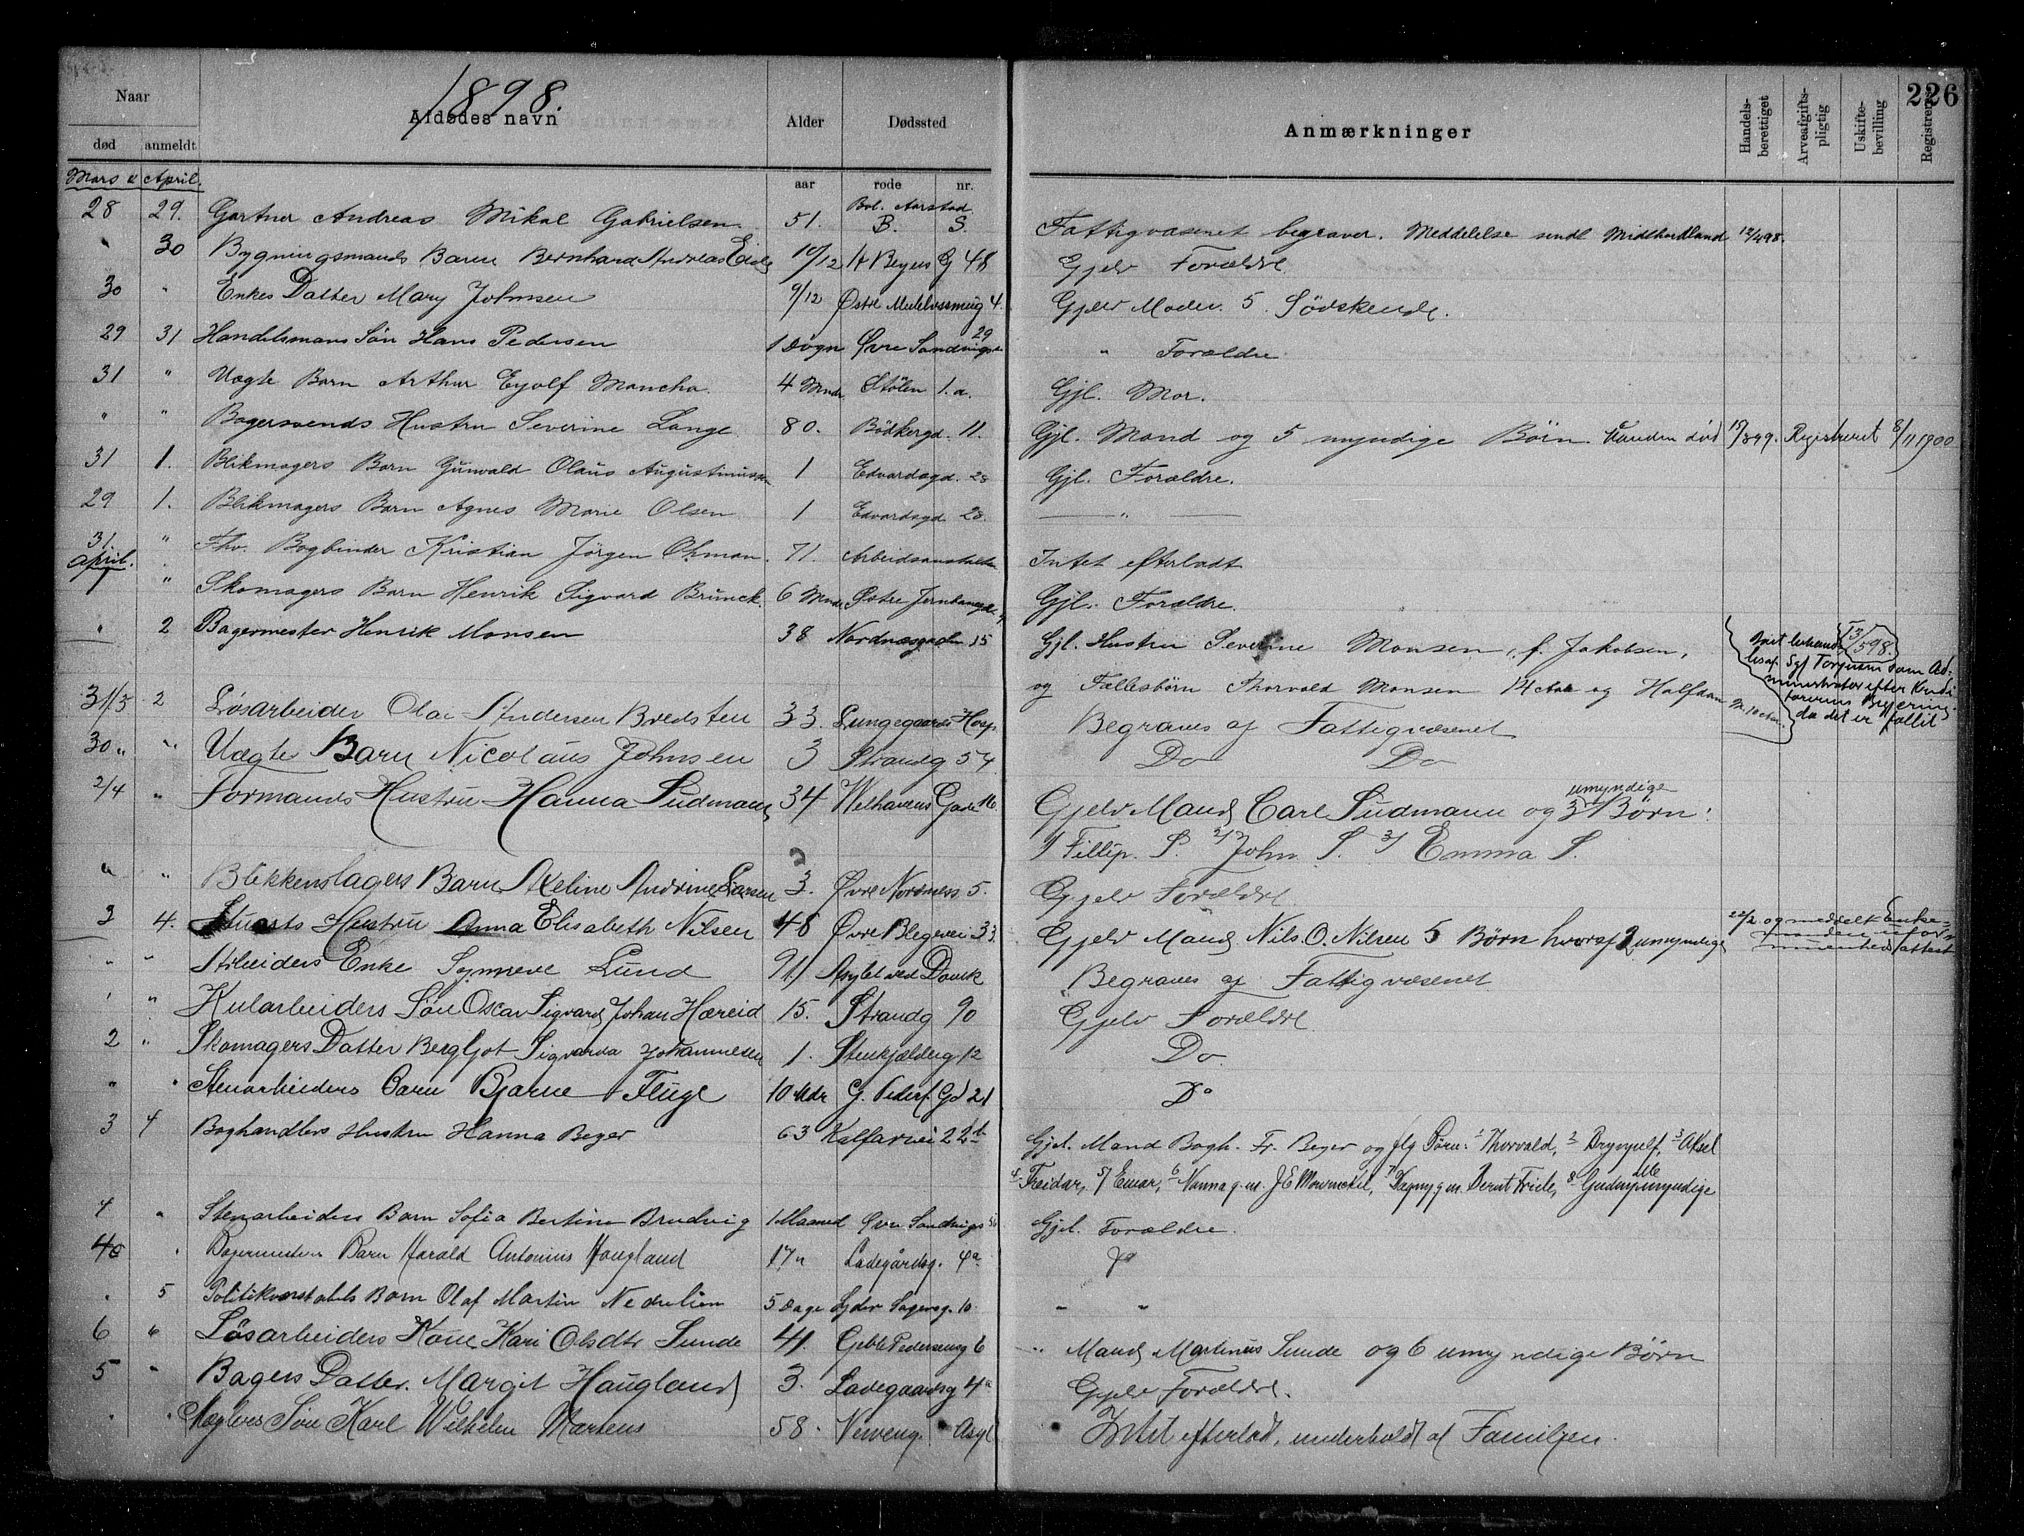 1898.
226
Naar
Afdødes navn
Alder
Dødssted
Anmærkninger
Handels-berettiget
Arveafgifts-pligtig
Uskifte-bevilling
Registrering
død anmeldt
aar rode nr.
Mars & April.
28 29. Gartner Andreas Mikal Gabrielsen 51. Bol. Aarstad B. S. Fattigvæsenet begraver. Meddelelse sendt Midthordland 12/4 98.
" 30 Bygningsmands Barn Bernhard Andreas 10/12 G 48 Gjelv Forældre
30 " Enkes Datter Mary Johnsen 9/12 Østre 4. Gjelv Moder. 5 Södskende.
29 31 Handelsmans Søn Hans Pedersen 1 Døgn Øvre Sandvigs 29 " Forældre
31 " Uægte Barn Arthur Eyolf 4 Mndr. Stölen 1.a. Gjl. Mor.
" " Bagersvends Hustru Severine Lange 80. Bödkergd. 11. Gjl. Mand og 5 myndige Börn. Manden död 17/3 99. Registreret 8/11 1900
31 1. Blikmagers Barn Gunvald Olaus Augustinussen 1 Edvardsgd. 28 Gjl. Forældre.
29 1. Blikmagers Barn Agnes Marie Olsen 1 Edvardsgd 28. "
31. " Fhv. Bogbinder Kristian Jörgen Ohman. 71. Arbeidsanstalten Intet efterladt
April.
1 " Skomagers Barn Henrik Sigvard Brunck. 6 Mndr Østre Gjl. Forældre.
" 2 Bagermester Henrik Monsen 38 Nordnæsgaden 15 Gjl. Hustru Severine Monsen, f. Jakobsen,
og Fællesbörn Thorvald Monsen 14 Aar og Halfdan M. 10 Aar.
13/5 98.
Boet behandles af Sgf Torgersen som Administrator efter Kreditorernes Begjering da det er fallit
31/3 2 Løsarbeider Olai Andersen Bredsten 33. Lungegaards Hosp. Begraves af Fattigvæsenet
30 " " Uægte Barn Nicolaus Johnsen 3 Strandg 54 Do Do
2/4 " Formands Hustru Hanna Sudmann 34 Welhavens Gade 16. Gjelv Mand Carl Sudmann og 3 umyndige Børn:
1/ Fillip. S. 2/ John S. 3/ Emma S.
" " Blikkenslagers Barn Axeline Andrine Larsen 3. Øvre Nordness 5. Gjelv Forældre.
3 4. Stuerts Hustru Anna Elisabeth Nilsen 48 Øvre Blegevei 33. Gjelv Mand Nils O. Nilsen 5 Børn hvoraf 2 umyndige 22/2 og meddelt Enkemanden uformuenhedsattest
" " Arbeiders Enke Synneve Lund 91 Asylet ved Domk Begraves af Fattigvæsenet
" " Kularbeiders Søn Oscar Sigvard Johan Hæreid 15. Strandg 90 Gjelv Forældre
2 " Skomagers Datter Bergljot Sigvarda Johannesen 1. Stenkjælderg 12 Do.
" " Stenarbeiders Barn Bjarne Fluge 10 Mdr G. Peders Gd 21 Do
3 4 Boghandlers Hustru Hanna Beyer 63 Kalfarvei 22b Gjel. Mand Bogh. Fr. Beyer og flg Børn: 1 Thorvald, 2 Brynjulf, 3 Aksel
4 Freidar, 5/ Einar, 6 Nanna g.m. J E Mowinckel, 7 Dagny g.m. Bernt Friele, 8 Gudrun alle myndige
4 " Stenarbeiders Barn Sofia Bertine Brudvig 1 Maaned Øvre Sandvigs Gjel. Forældre.
4 " Bagermesters Barn Harald Antonius Haugland 17 " Ladegårdsg. 4a Do
" 5 Politikonstabels Barn Olaf Martin Nedrelien 5 Dage Lyder Sagensg. 10 " "
6 " Løsarbeiders Kone Kari Olsdtr Sunde 41. Geble Pedersensg 6 " Mand Martinus Sunde og 6 umyndige Børn
5 " Bagers Datter. Margit Haugland 3. Ladegaardsg 4a Gjelv Forældre.
" " Mæglers Søn Karl Wilhelm Martens 58. Neveng. Asyl Intet efterladt, underholdt af Familjen.